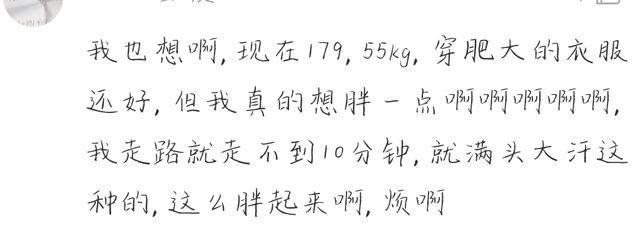 我也想啊,现在179,55kg,穿肥大的衣服
还好,但我真的想胖一点啊啊啊啊啊,
我走路就走不到10分钟,就满头大汗这
种的,这么胖起来啊,烦啊